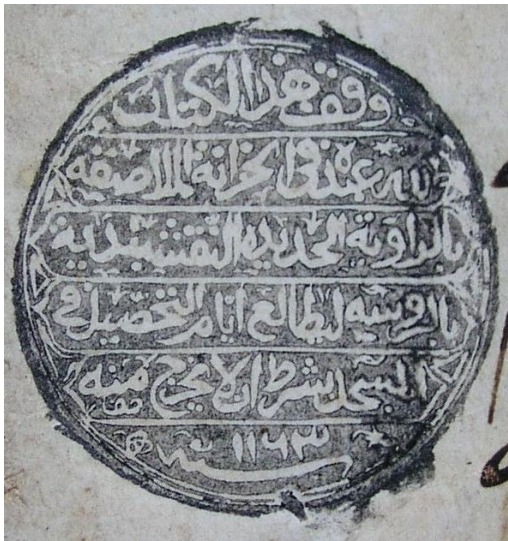 وقف هذا الكتاب
لله عبده في الخزانة الملاصقه
بالزاوية الجديدة النقشبندية
ليطالع ايام التحصيل في
المسجد بشرط ان لا يخرج منه
سنة ١١٦٣